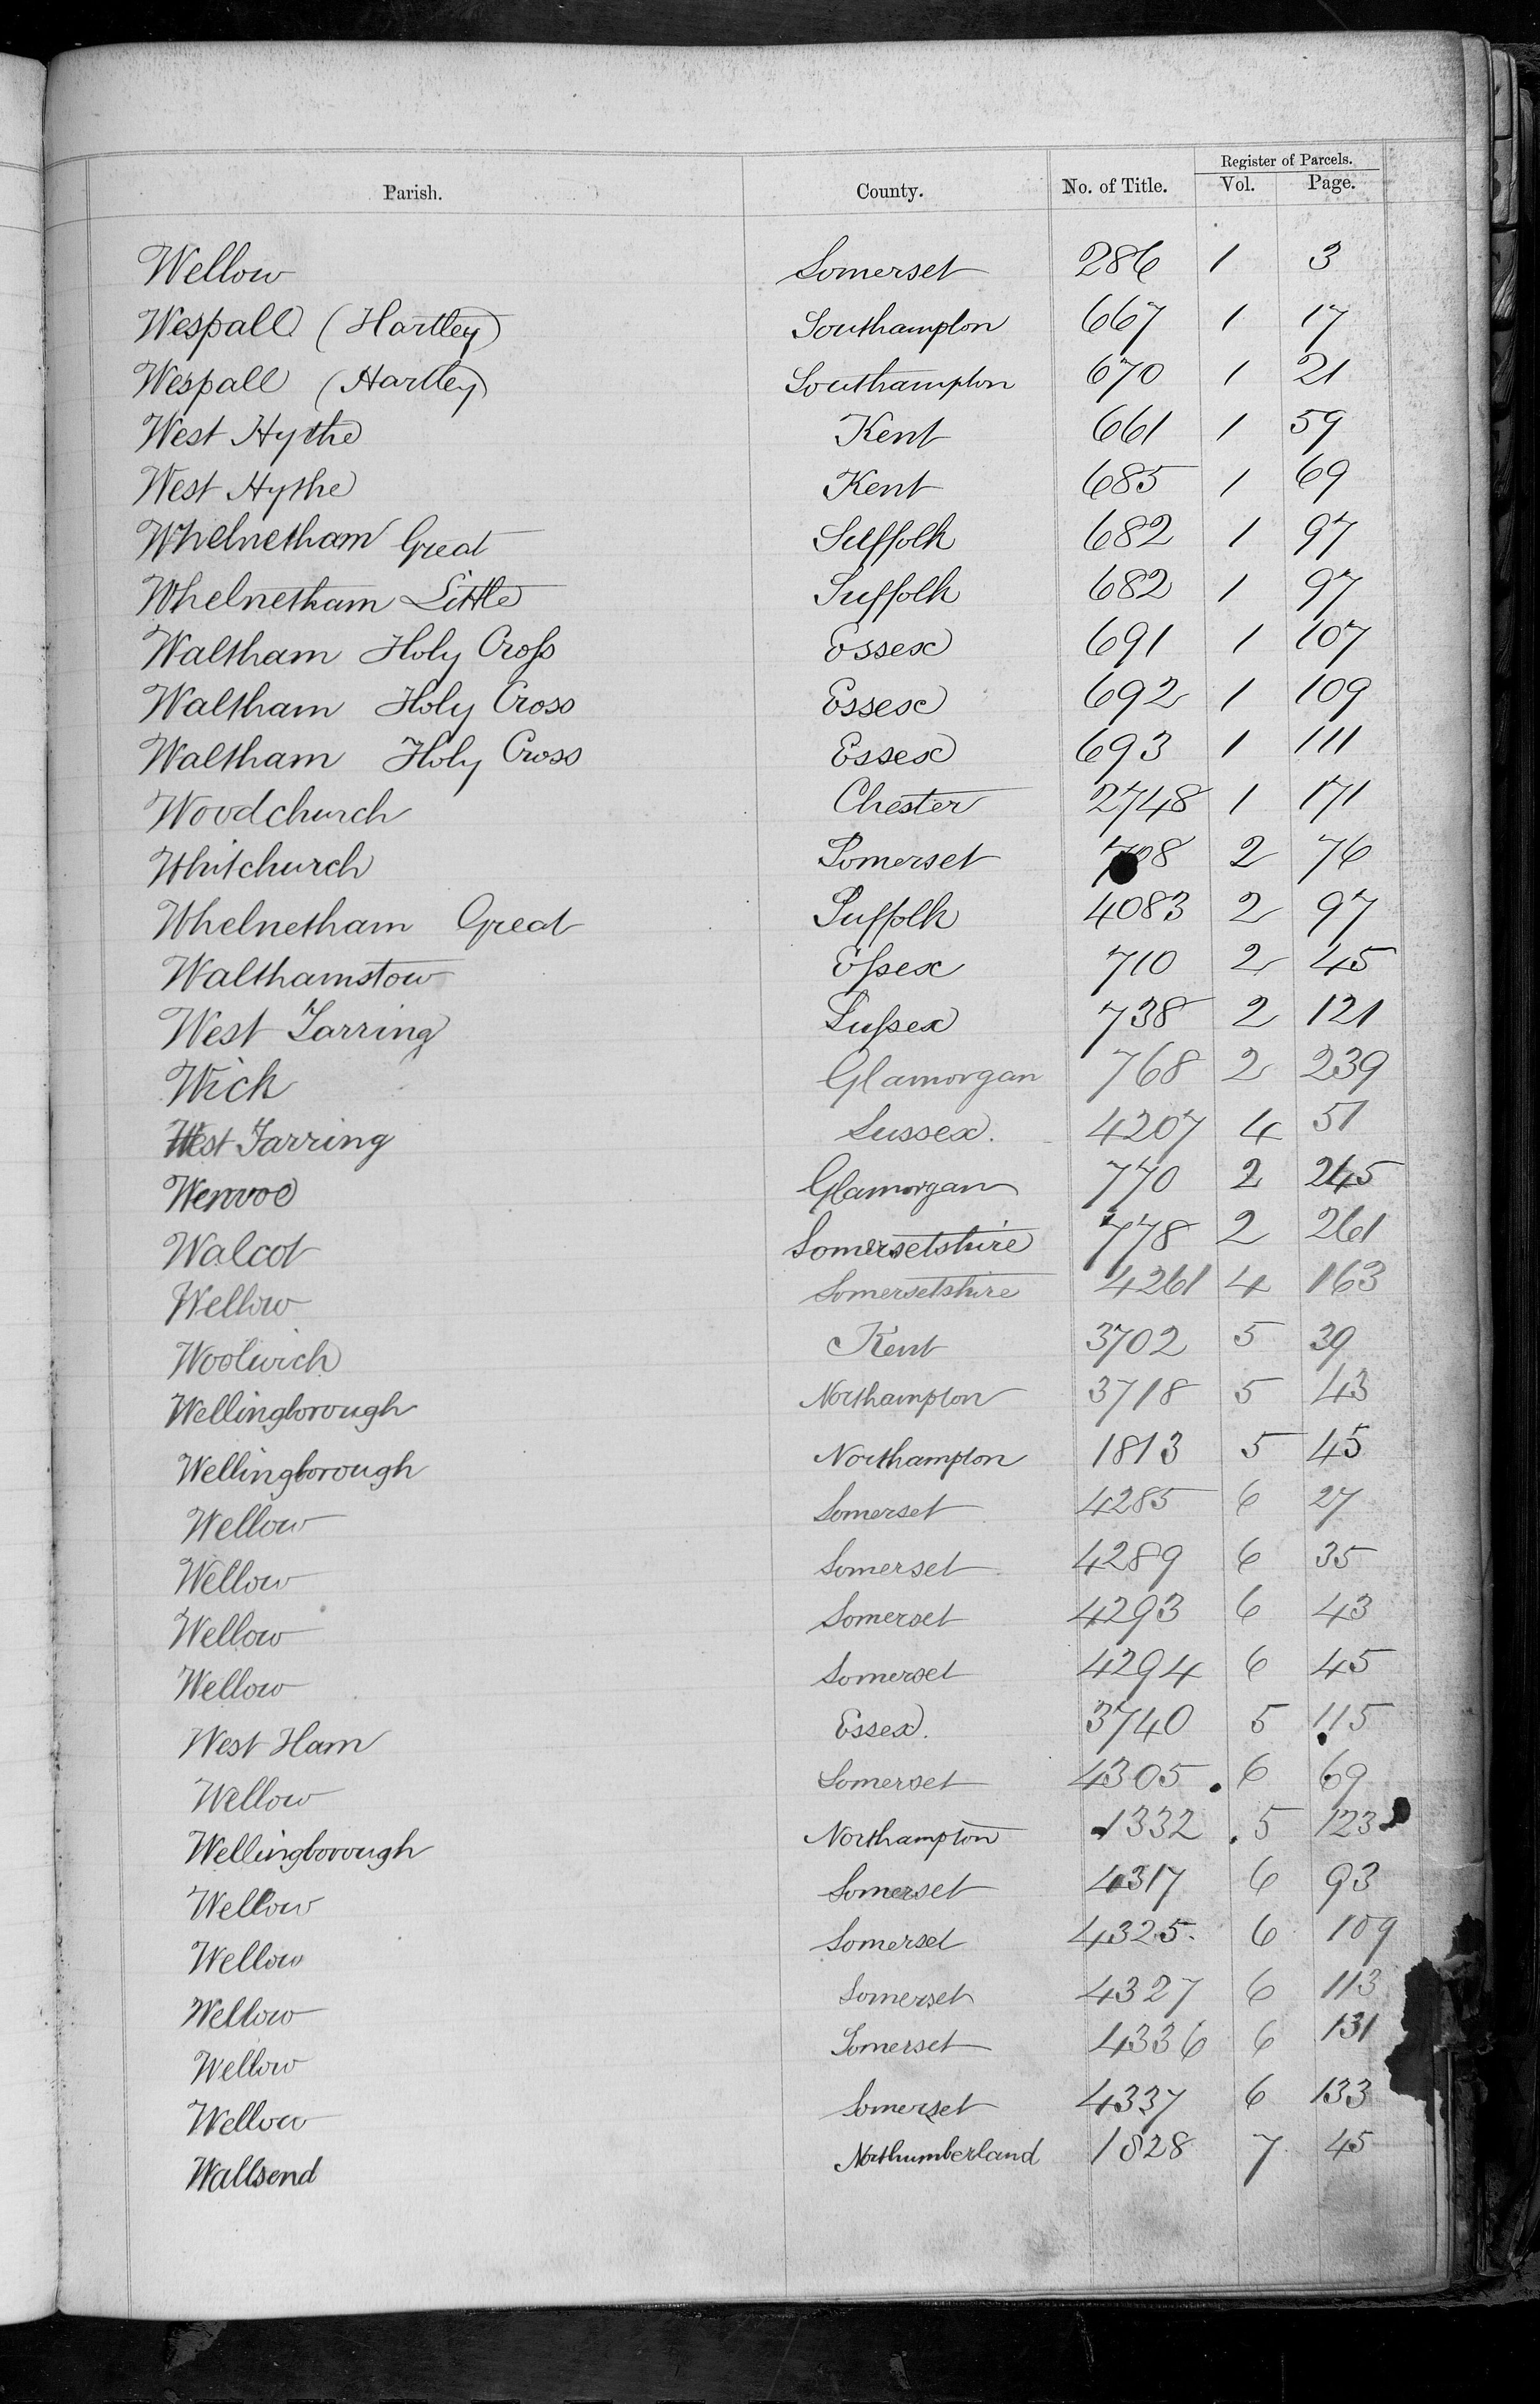 Register of Parcels.
Parish. County. No. of Title. Vol. Page.
Wellow Somerset 286 1 3
Wespall (Hartley) Southampton 667 1 17
Wespall (Hartley) Southampton 670 1 21
West Hythe Kent 661 1 59
West Hythe Kent 685 1 69
Whelnetham Great Suffolk 682 1 97
Whelnetham Little Suffolk 682 1 97
Waltham Holy Cross Essex 691 1 107
Waltham Holy Cross Essex 692 1 109
Waltham Holy Cross Essex 693 1 111
Woodchurch Chester 2748 1 171
Whitchurch Somerset 708 2 76
Whelnetham Great Suffolk 4083 2 97
Walthamstow Essex 710 2 45
West Tarring Sussex 738 2 121
Wick Glamorgan 768 2 239
West Tarring Sussex. 4207 4 51
Wenvoe Glamorgan 770 2 245
Walcot Somersetshire 778 2 261
Wellow Somersetshire 4261 4 163
Woolwich Kent 3702 5 39
Wellingborough Northampton 3718 5 43
Wellingborough Northampton 1813 5 45
Wellow Somerset 4285 6 27
Wellow Somerset 4289 6 35
Wellow Somerset 4293 6 43
Wellow Somerset 4294 6 45
West Ham Essex. 3740 5 115
Wellow Somerset 4305 6 69
Wellingborough Northampton 1332 5 123
Wellow Somerset 4317 6 93
Wellow Somerset 4325. 6 109
Wellow Somerset 4327 6 113
Wellow Somerset 4336 6 131
Wellow Somerset 4337 6 133
Wallsend Northumberland 1828 7 45